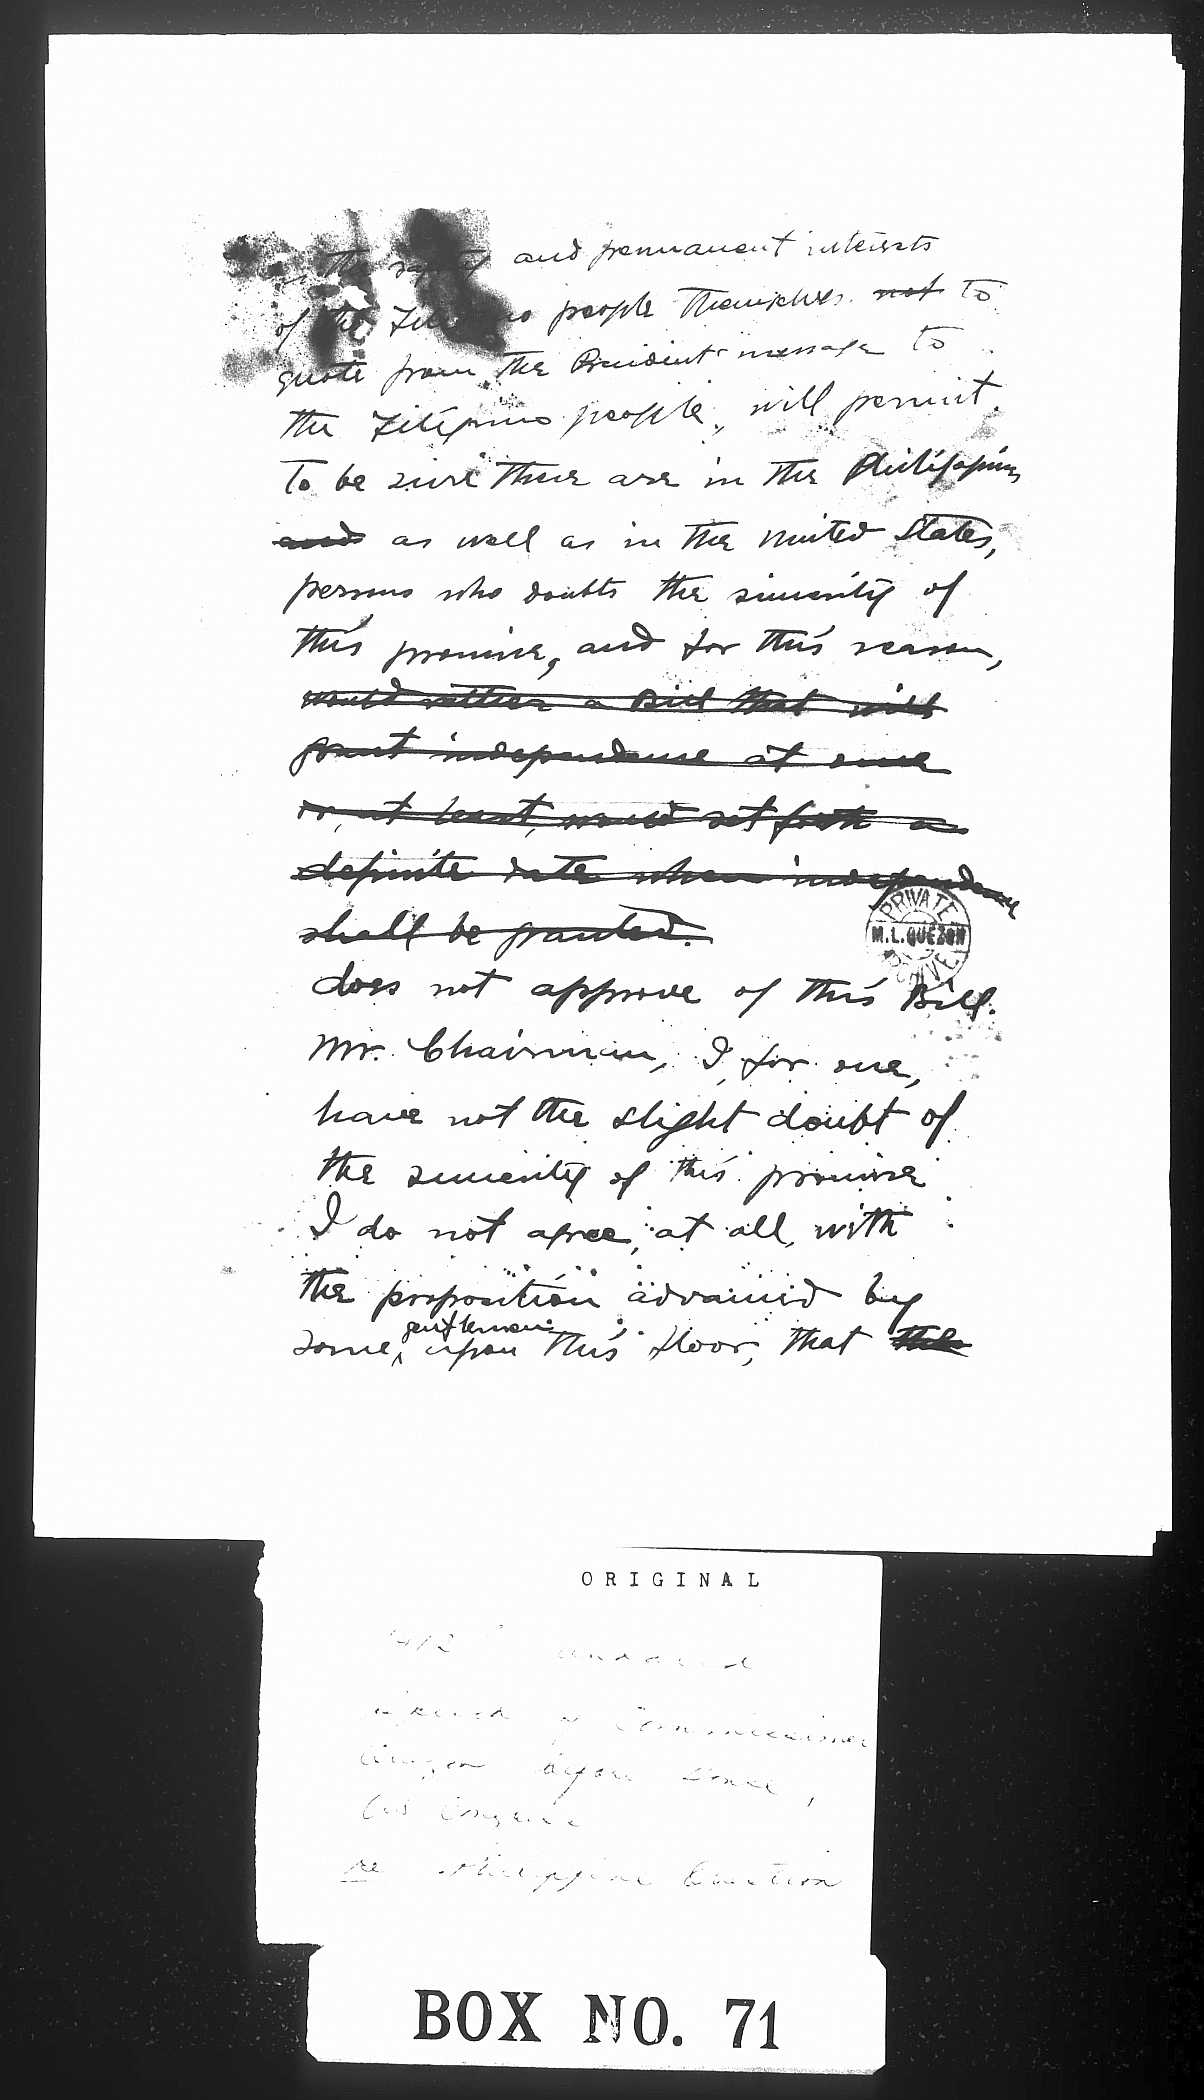 as the safety and permanent interests
of the Filipino people themselves not to
quote from the President message to
the Filipino people, will permit.
To be sure there are in the Philippines
and as well as in the United States,
persons who doubts the sincerity of
this promise, and for this reason,
would rather a Bill that will
grant independence at once
or, at least, would set forth a
definite date when independence
shall be granted.
PRIVATE
M.L. QUEZON
does not approve of this Bill.
Mr. Chairman, I, for one,
have not the slight doubt of
the sincerity of this promise
I do not agree, at all, with
the proposition advanced by
gentlemen
some, upon this floor, that the
ORIGINAL
undated
Speech of Commissioner
Quezon before House,
US Congress
re Philippine Question
BOX NO. 71